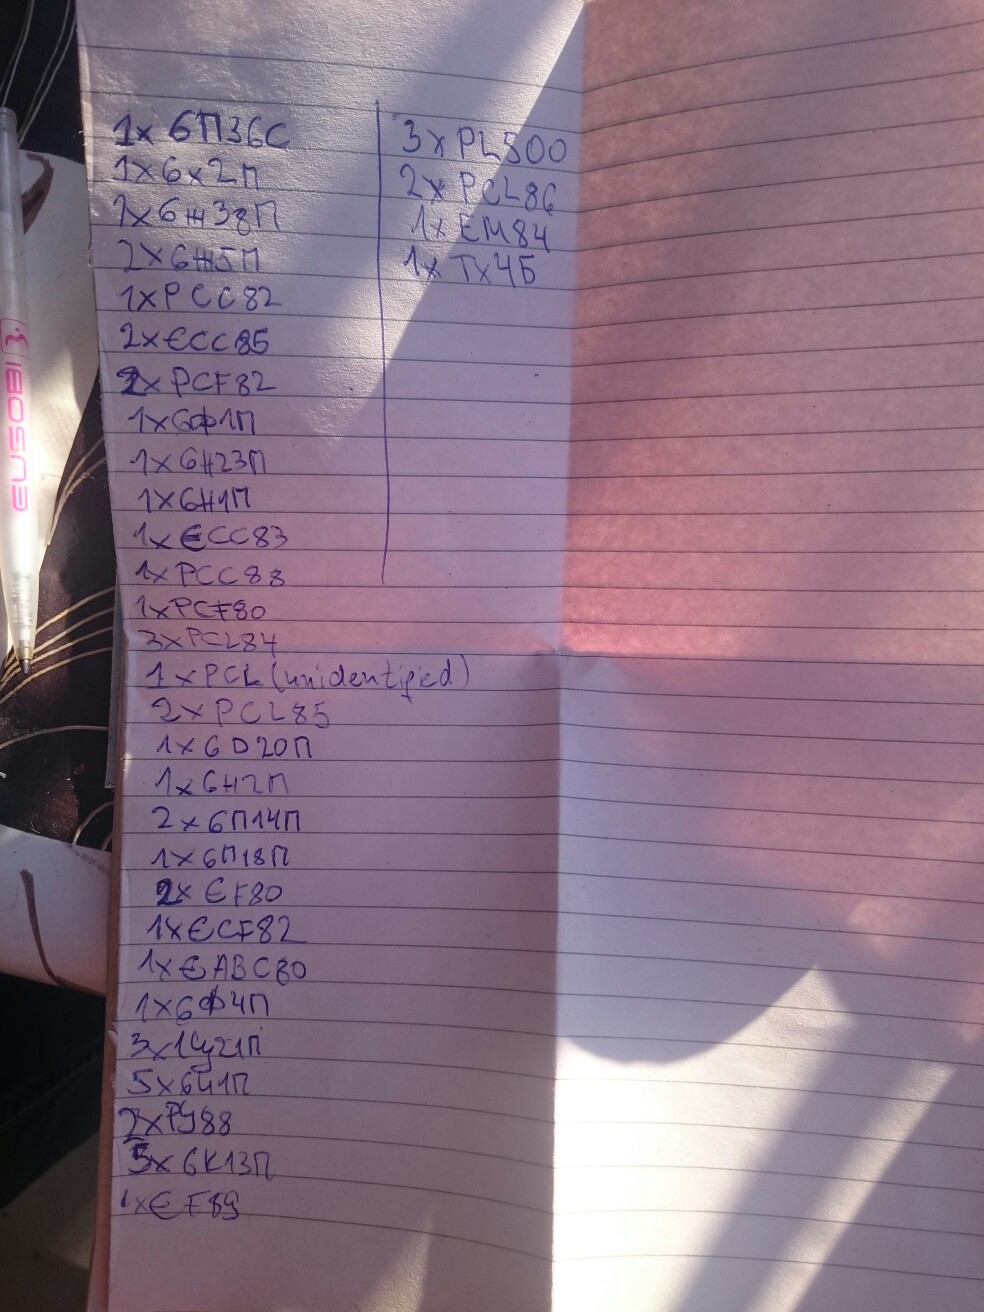 1x 6П36С
1x6x2П
1x6ж38П
2x6Ж5П
1xPCC82
2xECC85
2x PCF82
1x6Ф1П
1x6Н23П
1x6Н1П
1xECC83
1xPCC88
1xPCF80
3xPCL84
1xPCL (unidentified)
2xPCL85
1x6D20П
1x6Н2П
2x6П14П
1x6П18П
2x EF80
1xECF82
1xEABC80
1x6Ф4П
3x1Ц21П
5x6Ч1П
2xPY88
5x 6К13П
1xEF89
3xPL500
2x PCL86
1x EM84
1x Тх4Б
EUSOBI